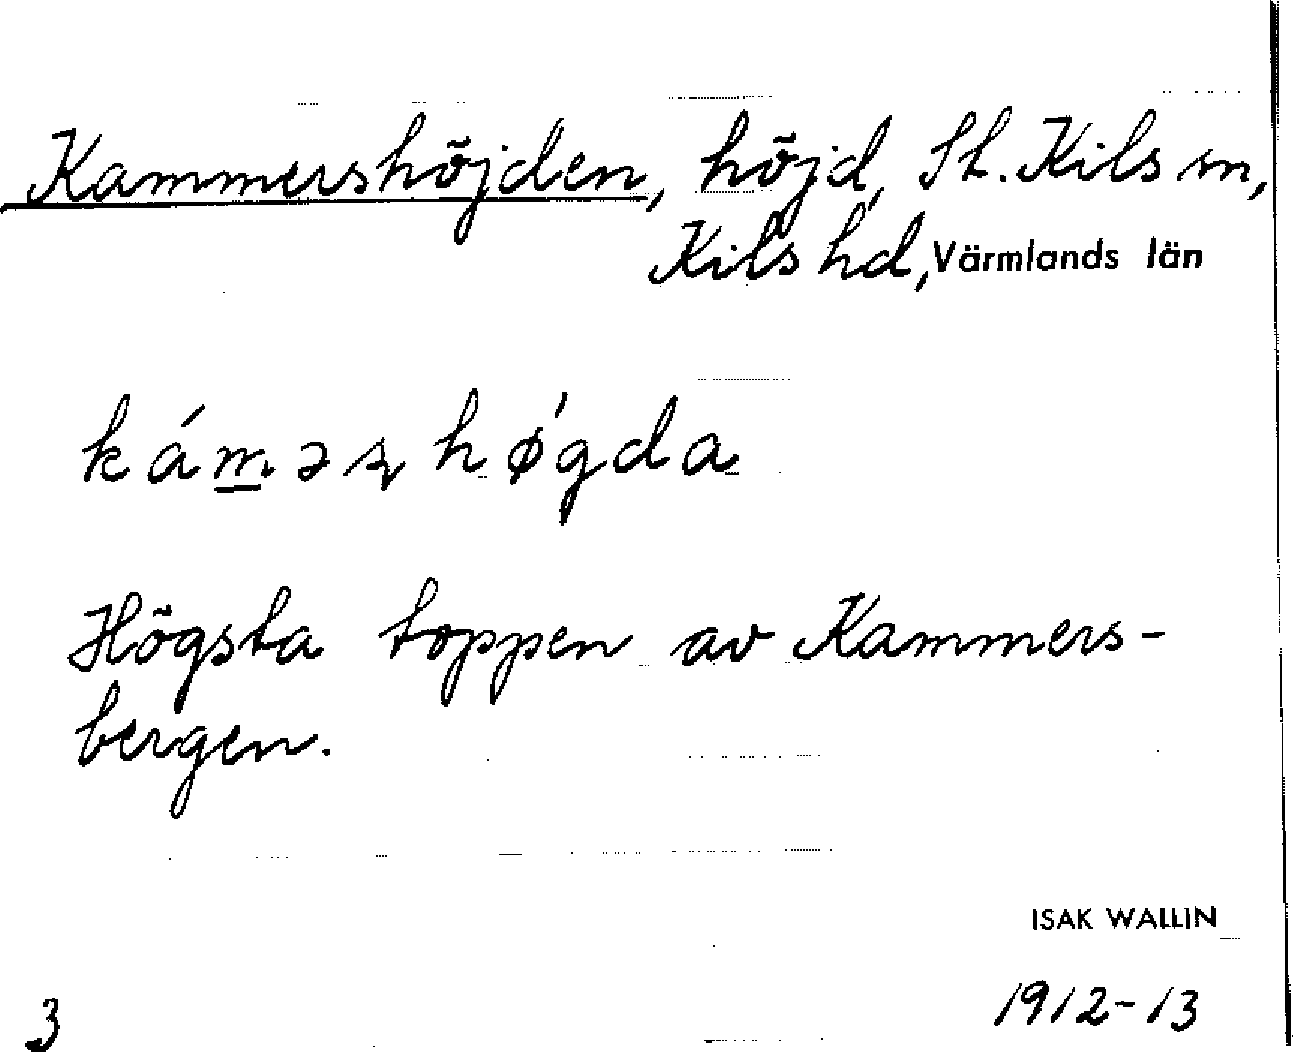 Kammershöjden, höjd, St. Kils sn,
Kils hd, Värmlands län
kám̲əʂhø̀gda
Högsta toppen av Kammers-
bergen.
ISAK WALLIN
3 1912-13